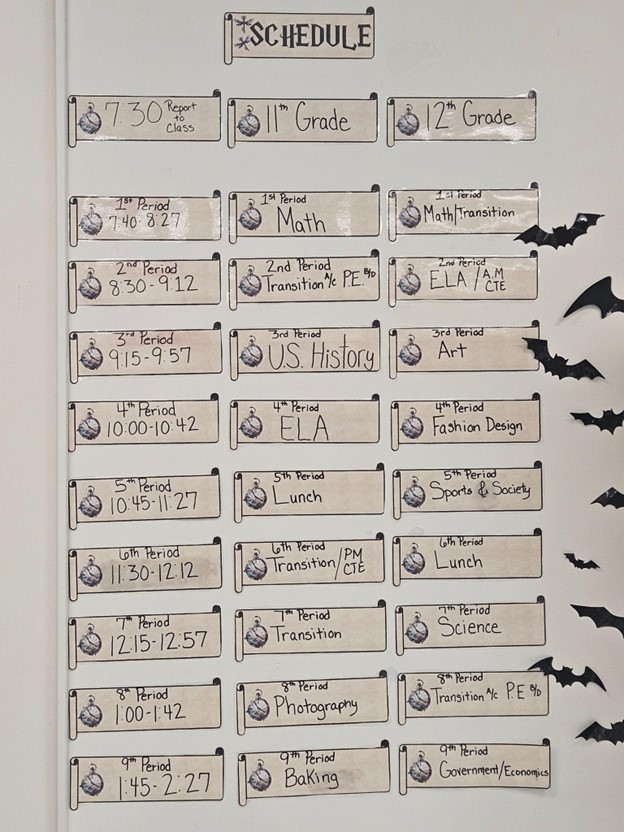 SCHEDULE
7:30 Report
to
Class
11th Grade
12th Grade
1st Period
7:40-8:27
1st Period
Math
1st Period
Math/Transition
2nd Period
8:30-9:12
2nd Period
Transition A/C P.E. B/D
2nd Period
ELA / A.M
CTE
3rd Period
9:15-9:57
3rd Period
U.S. History
3rd Period
Art
4th Period
10:00-10:42
4th Period
ELA
4th Period
Fashion Design
5th Period
10:45-11:27
5th Period
Lunch
5th Period
Sports & Society
6th Period
11:30-12:12
6th Period
Transition/PM
CTE
6th Period
Lunch
7th Period
12:15-12:57
7th Period
Transition
7th Period
Science
8th Period
1:00-1:42
8th Period
Photography
8th Period
Transition A/C P.E B/D
9th Period
1:45-2:27
9th Period
Baking
9th Period
Government/Economics